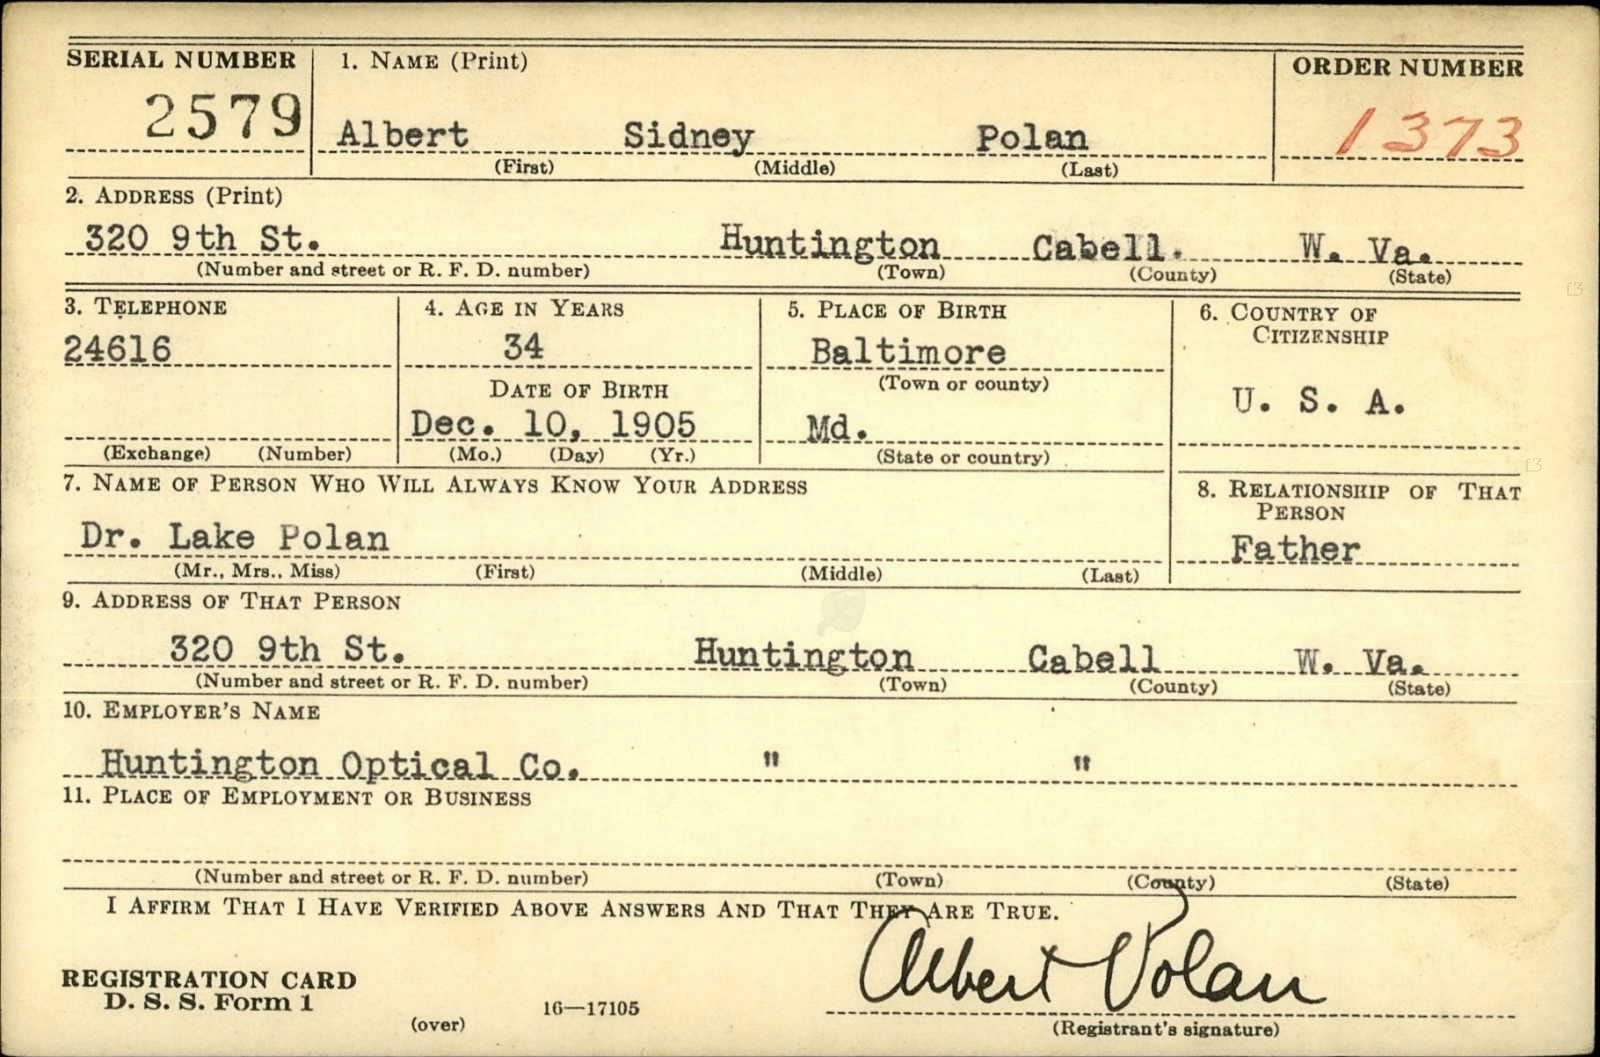 SERIAL NUMBER 1. NAME (Print) ORDER NUMBER
2579 Albert Sidney Polan 1373
(First) (Middle) (Last)
2. ADDRESS (Print)
320 9th St. Huntington Cabell. W. Va.
(Number and street or R. F. D. number) (Town) (County) (State)
3. TELEPHONE 4. AGE IN YEARS 5. PLACE OF BIRTH 6. COUNTRY OF CITIZENSHIP
24616 34 Baltimore
(Town or county)
DATE OF BIRTH U. S. A.
Dec. 10, 1905 Md.
(Exchange) (Number) (Mo.) (Day) (Yr.) (State or country)
7. NAME OF PERSON WHO WILL ALWAYS KNOW YOUR ADDRESS 8. RELATIONSHIP OF THAT PERSON
Dr. Lake Polan Father
(Mr., Mrs., Miss) (First) (Middle) (Last)
9. ADDRESS OF THAT PERSON
320 9th St. Huntington Cabell W. Va.
(Number and street or R. F. D. number) (Town) (County) (State)
10. EMPLOYER'S NAME
Huntington Optical Co. " "
11. PLACE OF EMPLOYMENT OR BUSINESS
(Number and street or R. F. D. number) (Town) (County) (State)
I AFFIRM THAT I HAVE VERIFIED ABOVE ANSWERS AND THAT THEY ARE TRUE.
Albert Polan
REGISTRATION CARD
D. S. S. Form 1 16—17105
(over) (Registrant's signature)